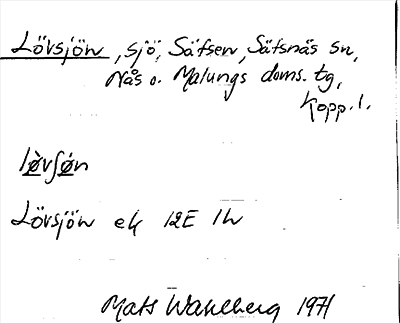 Lövsjön, sjö, Säfsen, Säfsnäs sn,
Nås o. Malungs doms. tg,
Kopp. l.
lø̀vʃøn
Lövsjön ek 12E 1h
Mats Wahlberg 1971